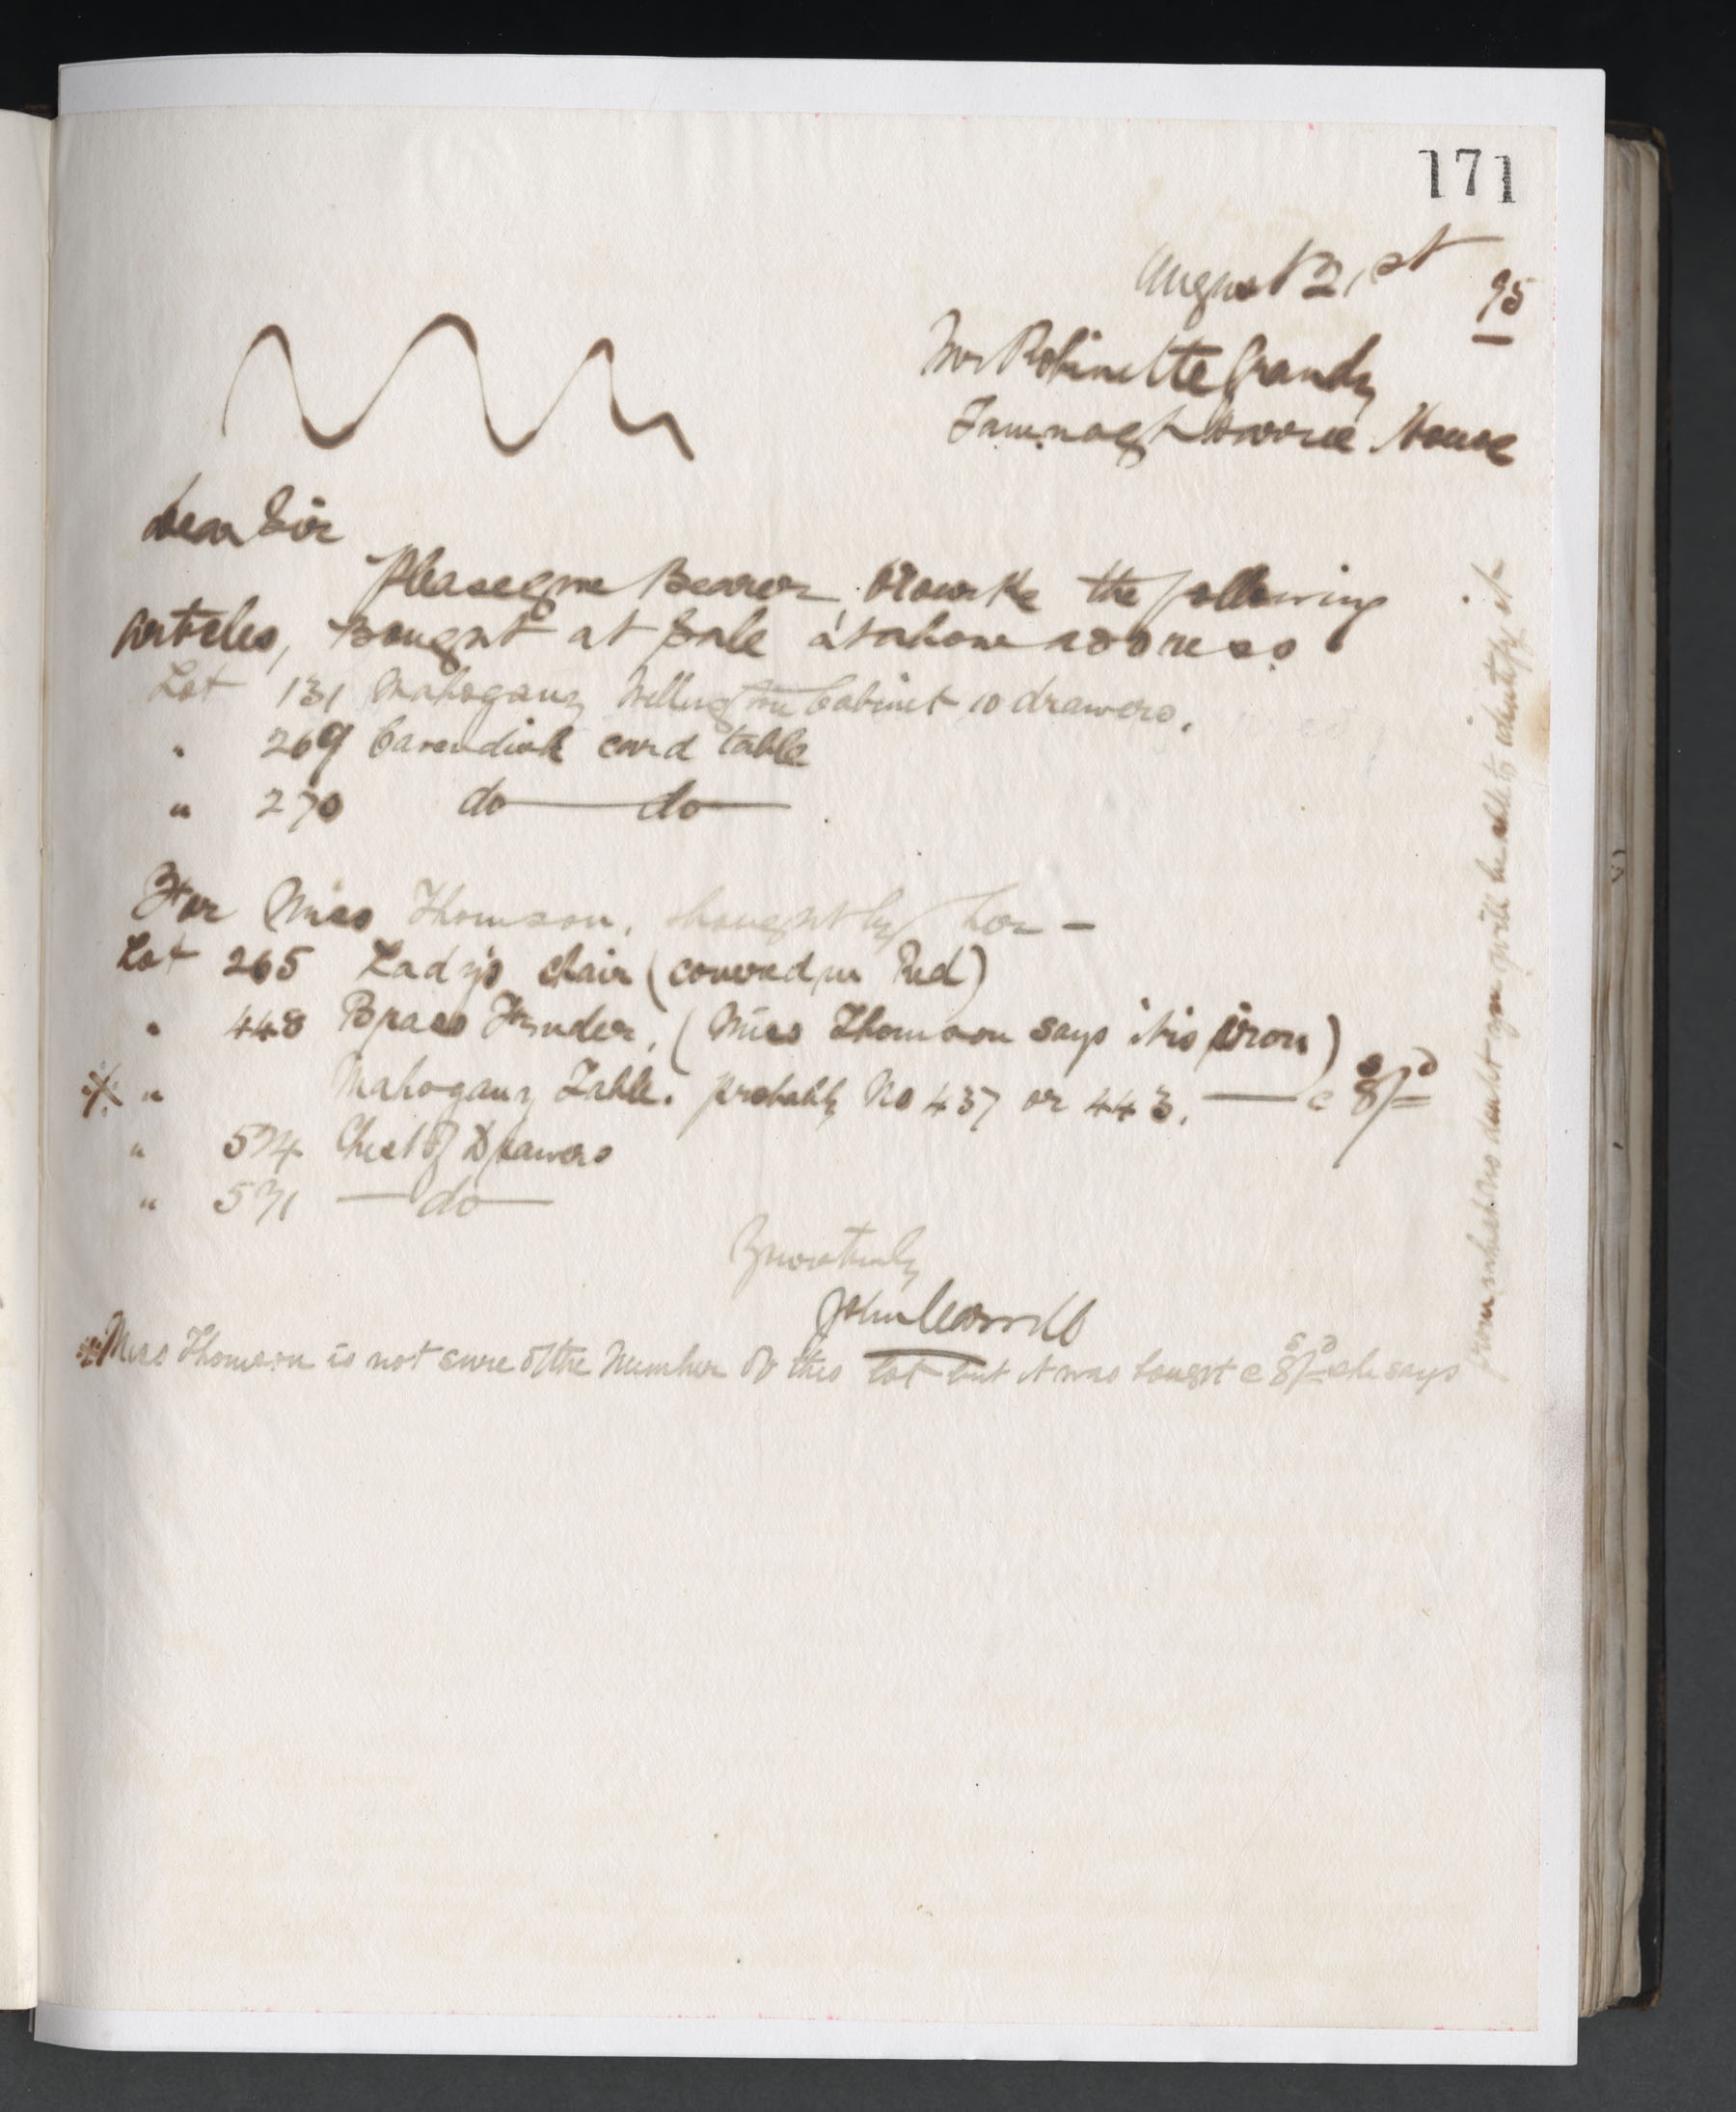 171
August 21st 95
Mr Robinette Grandy
Tamnagh House
Dear Sir
Please give Bearer, O'Rourke the following
articles, Bought at Sale at above address
Lot 131 Mahogany Wellington Cabinet 10 drawers.
" 269 Cavendish card table
" 270 do do
For Miss Thomson, bought by her —
Lot 265 Lady's chair (covered in Red)
" 448 Brass Fender, (Miss Thomson says it is iron)
※ " Mahogany Table. probably No 437 or 443. — @ 8s/=d
" 574 Chest of Drawers
" 571 — do —
Yours truly
John
※ Miss Thomson is not sure of the Number of this lot but it was bought @ 8s/=d she says
from what no doubt you will be able to identify it.